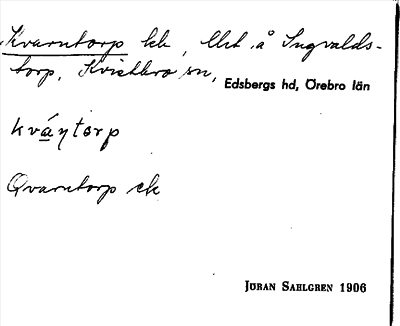 Kvarntorp lh, Ubt å Ingvalds-
torp, Kvistbro sn, Edsbergs hd, Örebro län
kvá̱ɳtɔrp
Qvarntorp ek
JÖRAN SAHLGREN 1906